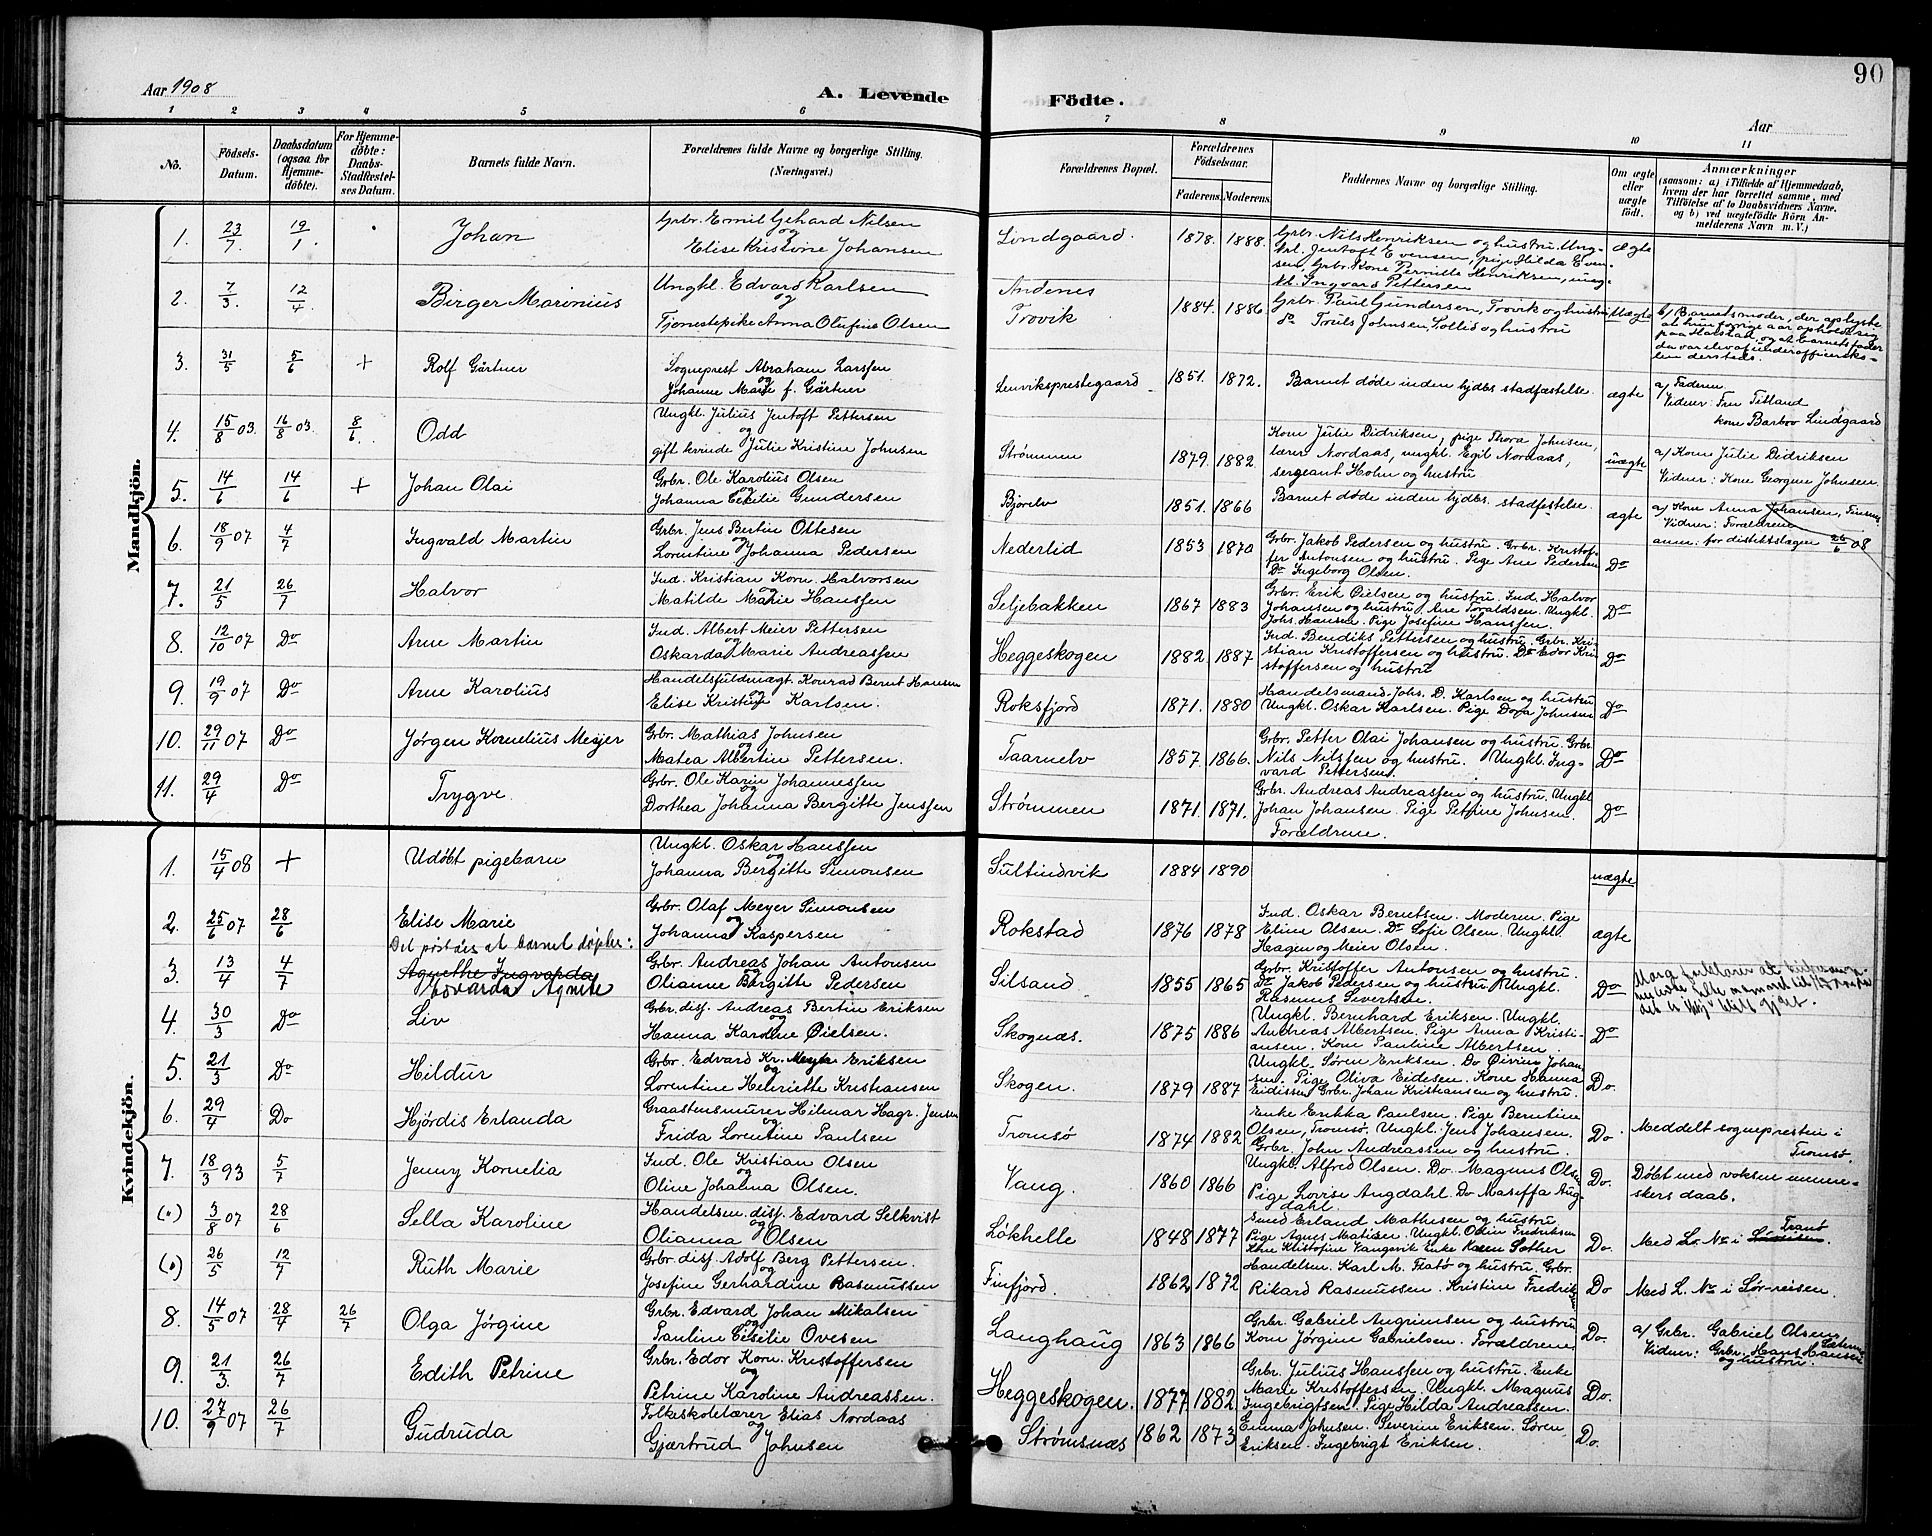 90
Aar 1908
A. Levende Födte.
Aar
1 2 3 4 5 6 7 8 9 10 11
No.
Födsels-Datum.
Daabsdatum (ogsaa for Hjemmedøbte).
For Hjemmedøbte: Daabs-Stadfæstelses Datum.
Barnets fulde Navn.
Forældrenes fulde Navne og borgerlige Stilling. (Næringsvei.)
Forældrenes Bopæl.
Forældrenes Födselsaar.
Faderens. Moderens.
Faddernes Navne og borgerlige Stilling.
Om ægte eller uægte födt.
Anmærkninger (saasom: a) i Tilfælde af Hjemmedaab, hvem der har forrettet samme, med Tilföielse af to Daabsvidners Navne. og b) ved uægtefödte Börn Anmelderens Navn m. V.)
Mandkjön.
1. 23/7. 19/1. Johan
Grbr. Emil Gehard Nilsen og Elise Kristine Johansen
Lindgaard. 1878. 1888.
Grbr. Nils Henriksen og hustru. Ungkrl. Jentoft Evensen, pige Hilda Evensen, Grbr. Kone Pernille Henriksen, ungkl. Ingvard Pettersen
ægte
2. 7/3. 12/4. Birger Marinius
Ungkl. Edvard Karlsen og Tjenestepike Anna Olufine Olsen
Andenes Trovik 1884. 1886.
Grbr. Paul Gundersen, Trovik og hustru do Truls Johnsen, Sollid og hustru
Uægte
b/ Barnets moder, der oplyste at hun forrige aar opholdt sig paa Harstad, og at barnets fader da var elev af underofficersskolen dersteds.
3. 31/5 5/6 + Rolf Gärtner
Sogneprest Abraham Larssen og Johanne Marie f. Gärtner
Lenviksprestegaard 1851. 1872.
Barnet døde inden hjdbs stadfæstelse.
ægte
a/ Faderen Vidner: Fru Titland kone Barbro Lindgaard
4. 15/8 03 16/8 03. 8/6. Odd
Ungkl. Julius Jentoft Pettersen og gift kvinde Julie Kristine Johnsen
Strømmen 1879. 1882.
Kone Julie Didriksen, pige Thora Johnsen, lærer Nordaas, ungkl. Egil Nordaas, sergeant Holm og hustru
uægte
a/ Kone Julie Didriksen Vidner: Kone Georgine Johnsen.
5. 14/6 14/6 + Johan Olai
Grbr. Ole Karolius Olsen og Johanna Cecilie Gundersen
Bjorelv 1851. 1866
Barnet døde inden hjdbs. stadfestelse.
ægte
a/ Kone Anna Johansen, Finsnes Vidner: Forældrene anm: for distiktslægen 26/6 08
6. 18/9 07 4/7 Ingvald Martin
Grbr. Jens Bertin Ottesen og Lorentine Johanna Pedersen
Nederlid 1853 1870
Grbr. Jakob Pedersen og hustru. Grbr. Kristoffer Antonsen og hustru. Pige Ane Pedersen Do Ingeborg Olsen.
Do
7. 21/5 26/7 Halvor
Ind. Kristian Korn. Halvorsen og Matilde Marie Hanssen
Seljebakken 1867 1883
Grbr. Erik Øielsen og hustru. Ind. Halvor Johansen og hustru. Ane Toraldsen. Ungkl. Johs. Hansen. Pige Josefine Hanssen.
Do
8. 12/10 07 Do Arne Martin
Ind. Albert Meier Pettersen og Oskarda Marie Andreassen
Heggeskogen 1882 1887
Ind. Bendiks Pettersen og hustru. Grbr. Kristian Kristoffersen og hustru. Do Edor Kristoffersen og hustru
Do
9. 19/9 07 Do Arne Karolius
Handelsfuldmægt. Konrad Bernt Hansen og Elise Kristine Karlsen.
Roksfjord 1871. 1880
Handelsmand Johs. D. Karlsen og hustru Ungkl. Oskar Karlsen. Pige Dora Johnsen
Do
10. 29/11 07 Do Jørgen Kornelius Mejer
Grbr. Mathias Johnsen og Matea Albertin Pettersen.
Taarnelv 1857. 1866.
Grbr. Petter Olai Johansen og hustru. Grbr. Nils Nilssen og hustru. Ungkl. Ingvard Pettersen.
Do
11. 29/4 Do Trygve
Grbr. Ole Karin Johannessen og Dorthea Johanna Bergitte Jenssen
Strømmen 1871. 1871.
Grbr. Andreas Andreassen og hustru. Ungkl Johan Johansen. Pige Petrine Johnsen. Forældrene.
Do
Kvindekjön.
1. 15/4 08 + Udøbt pigebarn
Ungkl. Oskar Hanssen og Johanna Bergitte Simonsen
Sultindvik 1884 1890
uægte
2. 25/6 07 28/6 Elise Marie
Grbr. Olaf Meyer Simonsen og Johanna Kaspersen
Rokstad 1876 1878
Ind. Oskar Berntsen. Moderen. Pige Eline Olsen. Do Sofie Olsen. Ungkl. Hagen og Meier Olsen.
ægte
Det påståes at barnet døptes:
3. 13/4 4/7 Agnethe Ingvarda Edvarda Agnete
Grbr. Andreas Johan Antonsen og Olianne Bergitte Pedersen
Silsand 1855 1865
Grbr. Kristoffer Antonsen og hustru. Do Jakob Pedersen og hustru Ungkl. Rasmus Sivertsen.
Do
4. 30/3 Do Liv
Grbr. disp. Andreas Bertin Eriksen og Hanna Kardine Øielsen.
Skognæs. 1875 1886
Ungkl. Bernhard Eriksen. Ungkl. Andreas Albertsen. Pige Anna Kristiansen. Kone Pauline Albertsen
Do
5. 21/3 Do Hildur
Grbr. Edvard Kr. Meyer Eriksen og Lorentine Henriette Kristiansen
Skogen. 1879 1887
Ungkl. Søren Eriksen. Do Øivind Johansen. Pige Oliva Eidesen. Kone Hanna Eidissen Grbr. Johan Kristiansen og hustru.
Do.
6. 29/4 Do Hjørdis Erlanda
Graastensmurer Hilmar Hagr. Jensen og Frida Lorentine Paulsen
Tromsø 1874 1882
Enke Erikka Paulsen. Pige Berntine Olsen, Tromsø. Ungkl. Jens Johansen. Grbr. John Andreassen og hustru.
Do.
Meddelt sognepresten i Tromsø.
7. 18/3 93 5/7 Jenny Kornelia
Ind. Ole Kristian Olsen og Oline Johanna Olsen.
Vang. 1860 1866
Ungkl. Alfred Olsen. Do. Magnus Olsen Pige Lovise Angdahl. Do Masiffa Augdahl.
Do.
Døbt med voksen menneskers daab.
(0) 3/8 07 28/6 Sella Karoline
Handelsm. disp. Edvard Selkvist og Olianna Olsen
Løkhelle 1848 1877
Smed Erland Mathisen og hustru Pige Agnes Matisen. Ungkl. Odin Fredriksen Kone Kristofine Vangsvik Enke Karen Sæther
Do.
Med L. Nr i Tranø
(0) 26/5 12/7 Ruth Marie
Grbr. disp. Adolf Berg Pettersen. og Josefine Gerhardine Rasmussen
Finfjord. 1862 1872
Handelsm. Karl M. Flatø og hustru. Grbr. Rikard Rasmussen. Kristine Fredriksen
Do
Med L. Nr i Sør-reisen.
8. 14/5 07 28/4 26/7 Olga Jørgine
Grbr. Edvard Johan Mikalsen og Pauline Cesilie Ovesen
Langhaug 1863 1866
Grbr. Gabriel Angrimsen og hustru Kone Jørgine Gabrielsen. Forældrene
Do.
a/ Grbr. Gabriel Olsen Vidner: Grbr. Hans Hansen og hustru.
9. 21/3. 26/7 Edith Petrine
Grbr. Edor Korn. Kristoffersen og Petrine Karoline Andreassen.
Heggeskogen. 1877 1882
Grbr. Julius Hanssen og hustru. Enke Marie Kristoffersen. Ungkl. Magnus Ingebrigtsen. Pige Hilda Andreassen.
Do.
10. 27/9 07 26/7 Gudruda
Folkeskolelærer Elias Nordaas og Gjærtrud Johnsen
Strømsnæs 1862 1873
Emma Johnsen. Severine Eriksen. Søren Eriksen. Ingebrigt Eriksen.
Do.